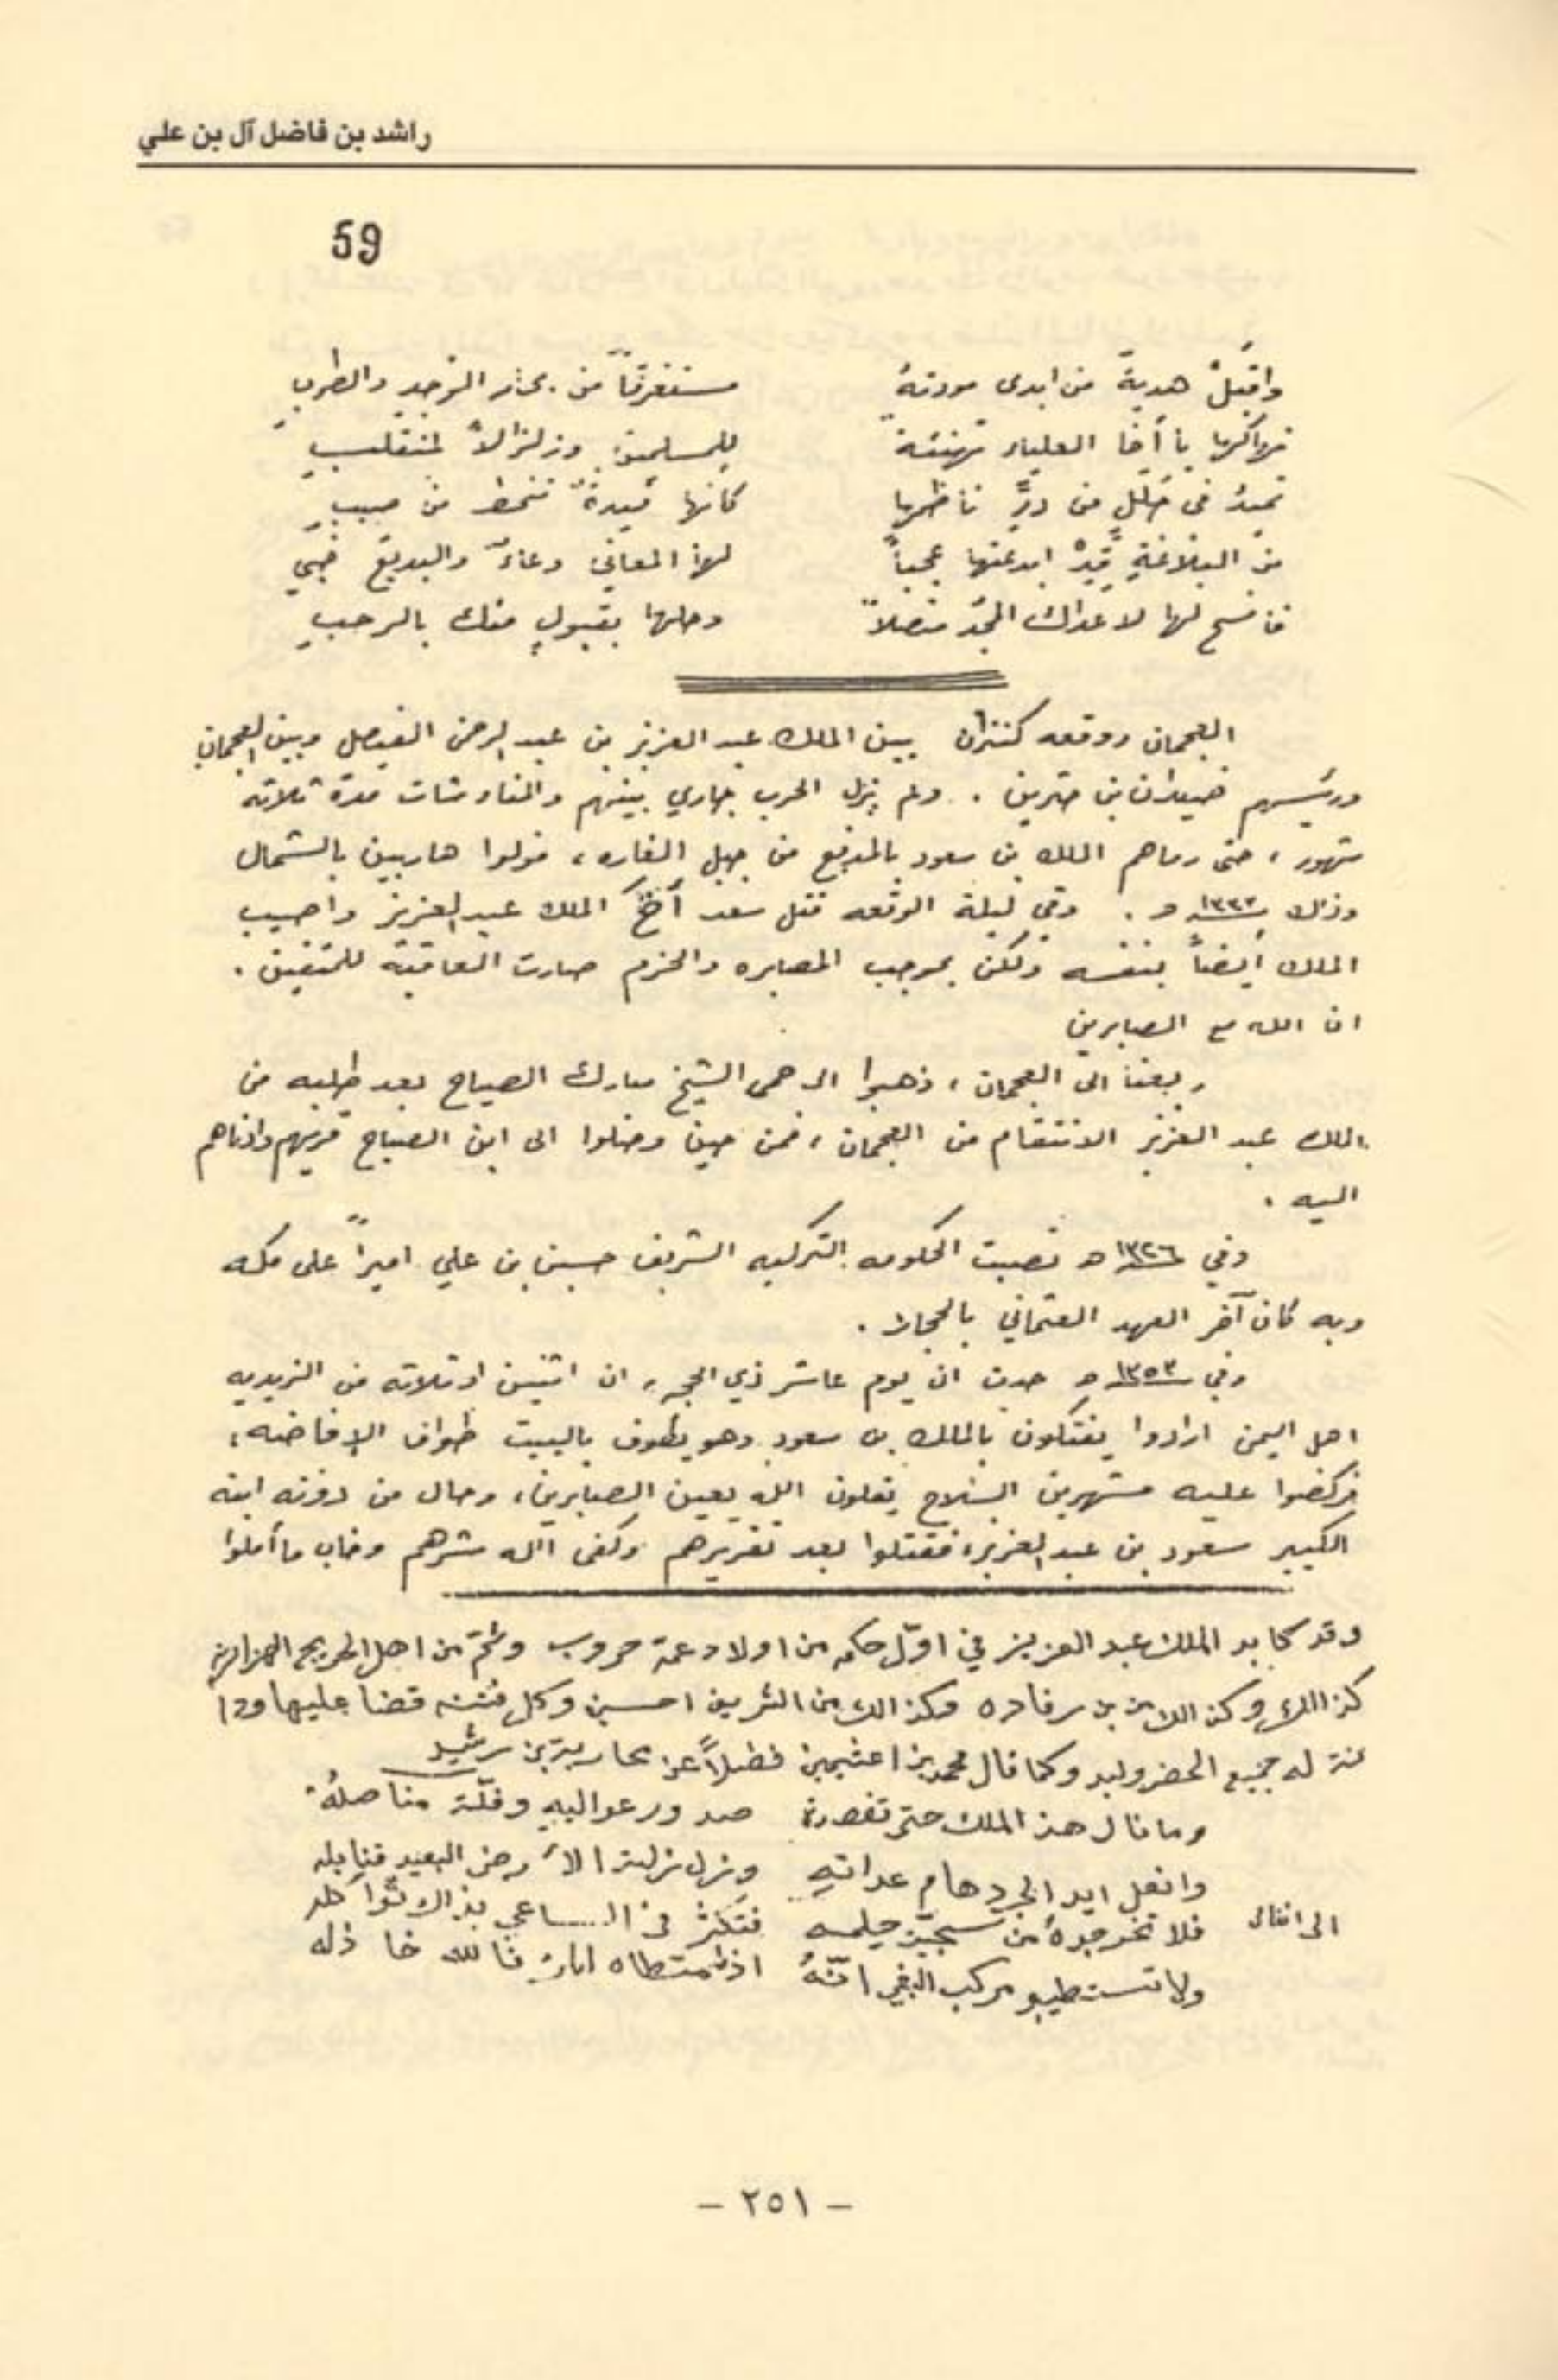 راشد بن فاضل آل بن علي
59
واقبلْ هدية من ابدى مودتهُ مستغرقاً من بحار الوجدِ والطربِ
فهاكها يا أخا العلياء تهنئة للمسلمين وزلزالاً لمنقلبِ
تميدُ في حللٍ من درٍّ ناظمها كأنها غيدةٌ تنحط من صببِ
من البلاغةِ قِدْ ابدعتها عجباً لها المعاني دعاءٌ والبديع
فافسح لها لا عداك المجد متصلاً وحلها بقبولٍ منك بالرحبِ
العجمان ووقعه كنزان بين الملك عبد العزيز بن عبد الرحمن الفيصل وبين العجمان
ورئيسهم ضيدان بن حثرين . ولم يزل الحرب جاري بينهم والمناوشات مدة ثلاثه
شهور ، حتى رماهم الملك بن سعود بالمدفع من جبل القاره ، فولوا هاربين بالشمال
وذلك ١٣٣٣ هـ . وفي ليلة الوقعه قتل سعد أخ الملك عبد العزيز واصيب
الملك أيضاً بنفسه ولكن بموجب المصابره والحزم صارت العاقبة للمتقين .
ان الله مع الصابرين
ربعنا الى العجمان ، ذهبوا الى حمى الشيخ مبارك الصباح بعد طلبه من
الملك عبد العزيز الانتقام من العجمان ، فمن حين وصلوا الى ابن الصباح قربهم وادناهم
اليه .
وفي ١٣٢٦ هـ نصبت الحكومه التركيه الشريف حسين بن علي اميراً على مكه
وبه كان آخر العهد العثماني بالحجاز .
وفي ١٣٥٣ هـ حدث ان يوم عاشر ذي الحجه ، ان اثنين او ثلاثه من الزيديه
اهل اليمن ارادوا يفتكون بالملك بن سعود وهو يطوف بالبيت طواف الإفاضه ،
فركضوا عليه مشهرين السلاح يقلون الله يعين الصابرين ، وحال من دونه ابنه
الكبير سعود بن عبد العزيز ، فقتلوا بعد تقريرهم وكفى الله شرهم وخاب ما أملوا
وقد كابد الملك عبد العزيز في اوّل حكمه من اولاد عمه حروب وثمّ من اهل الحريج الهزازين
كذالك وكذالك من بن رفاده وكذالك من الشريف احسين وكل فتنه قضا عليها ودا
نة له جميع الحضر ولبد وكما قال محمد بن اعثيمين فضلاً عن محاربة بن رشيد
وما نال هذ الملك حتى تقصدة صدور عواليهِ وفلّة مناصلُه
وانعل ايد الجرد هام عداتهِ ونزل نزلة الأرض البعيد قنابله
الى ان قال فلا تخرجوهُ من سجيّت حلمه فتكثر في الساعي بذالك ثواكله
ولا تستطيبو مركب البغي انّهُ اذ متطاه امرئ فالله خاذله
- ٢٥١ -